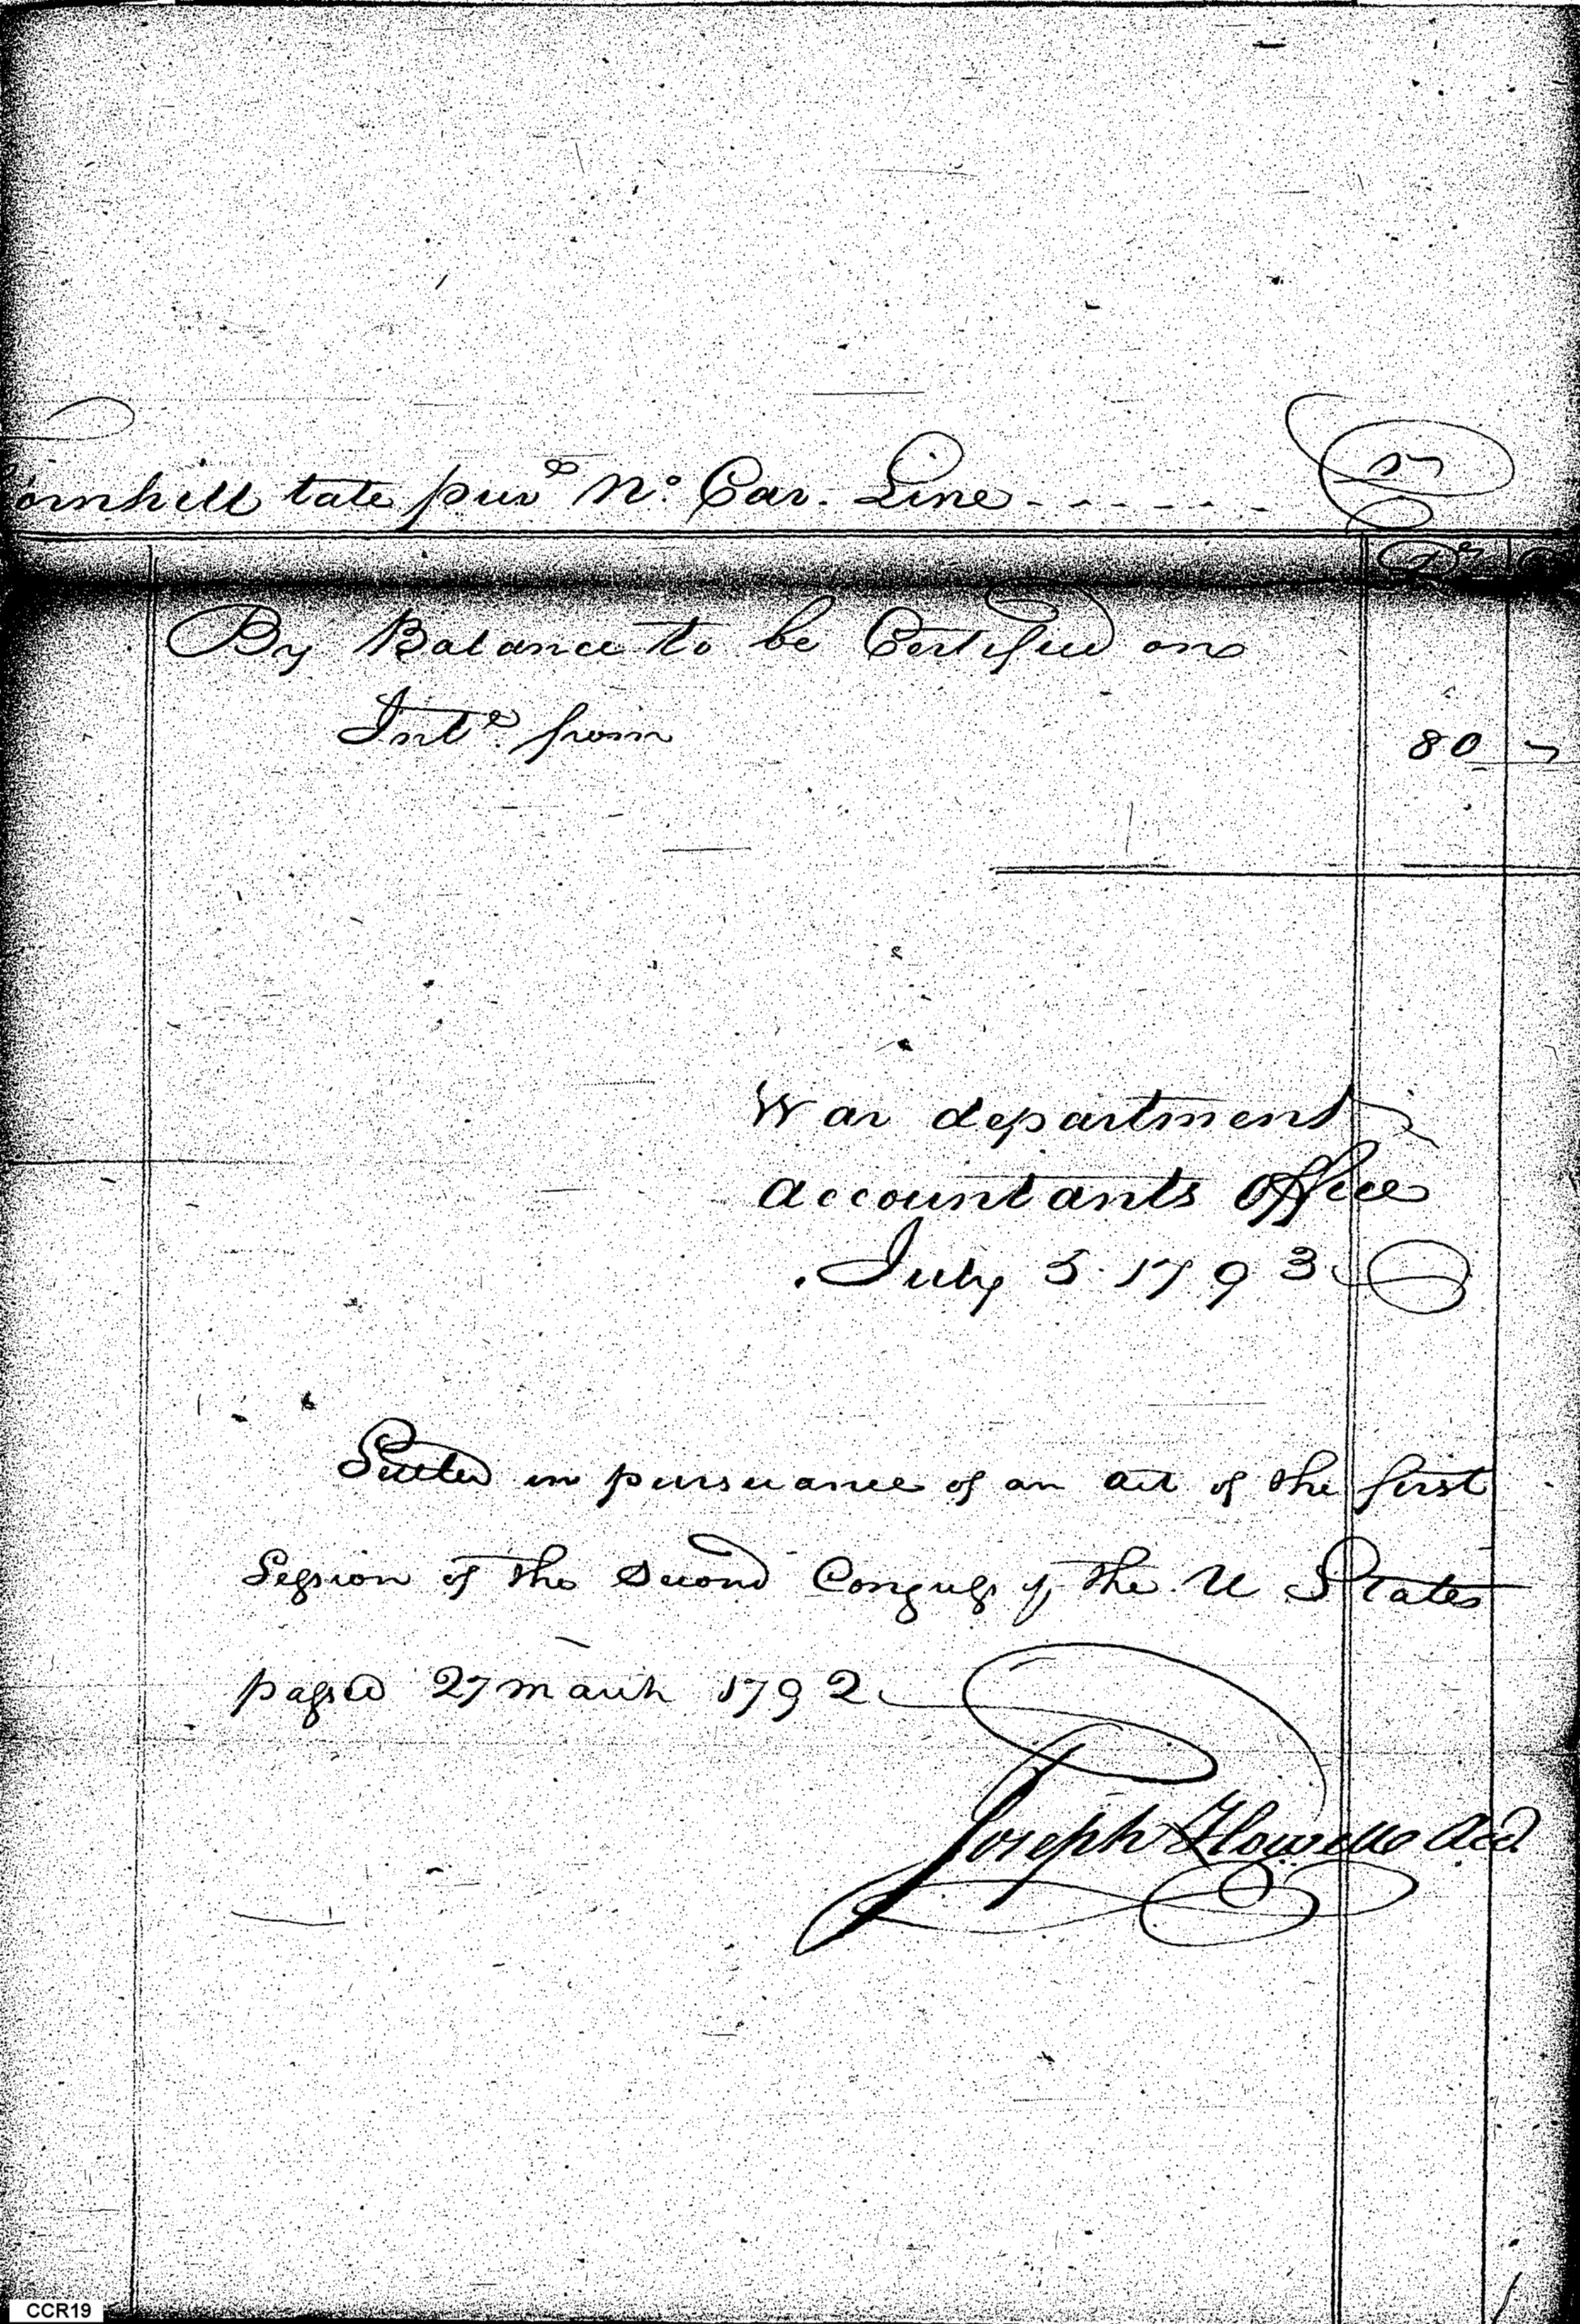 ornhill late priv.e No. Car. Line - - - - - -
By Balance to be Certified on
Int.e from
80
War department
accountants office
July 5 1793
Settled in pursuance of an act of the first
Session of the Second Congress of the U States
passed 27 march 1792
Joseph Howell Acct
CCR19